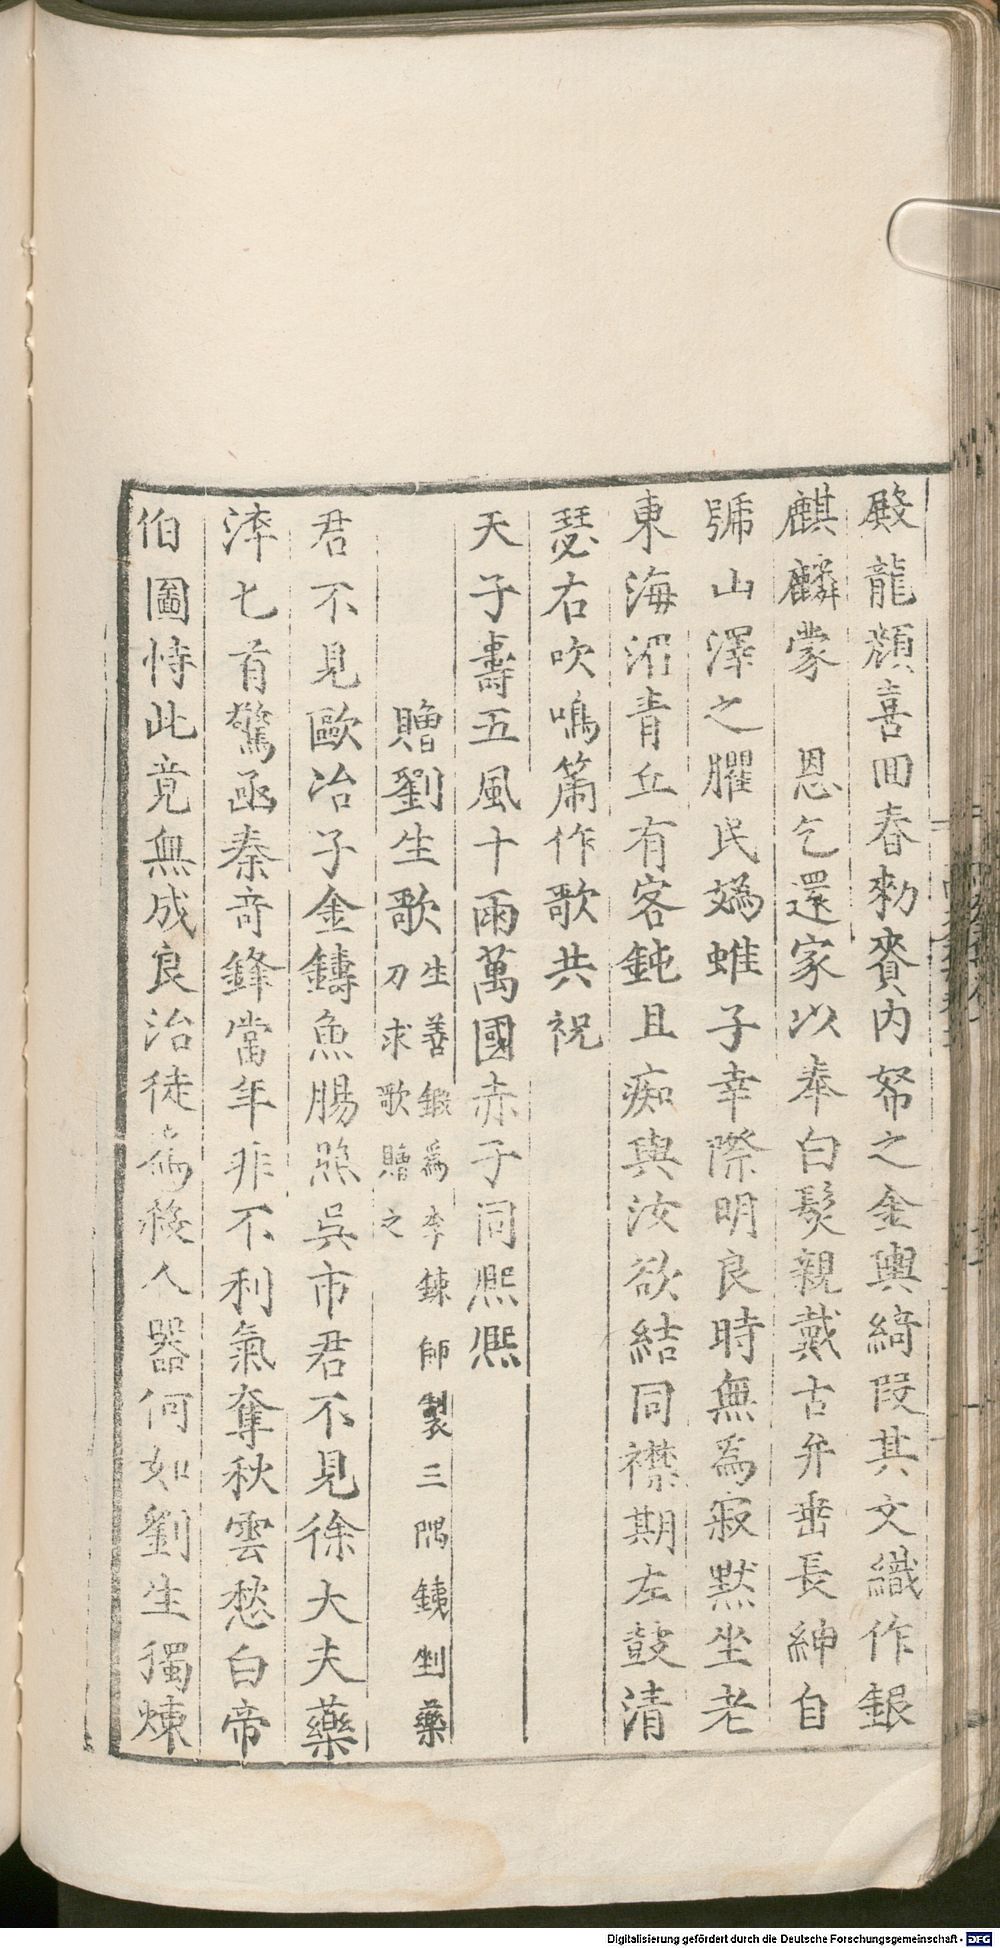 殿龍顏喜回春勑賚内帑之金輿綺叚其文織作銀
麒麟蒙　恩乞還家以奉白髮親戴古弁垂長紳自
號山澤之臞民媯蜼子幸際明良時無爲寂默坐老
東海湄青丘有客鈍且痴與汝欲結同襟期左鼓清
瑟右吹鳴簫作歌共祝
天子壽五風十雨萬國赤子同熈熈
贈劉生歌生善鍛爲李鍊師製三隅銕剉藥
刀求歌贈之
君不見歐冶子金鑄魚腸照吳市君不見徐大夫藥
淬七首驚函秦竒鋒當年非不利氣奪秋雲愁白帝
伯圖恃此竟無成良冶徒爲殺人器何如劉生獨煉
Digitalisierung gefördert durch die Deutsche Forschungsgemeinschaft - DFG